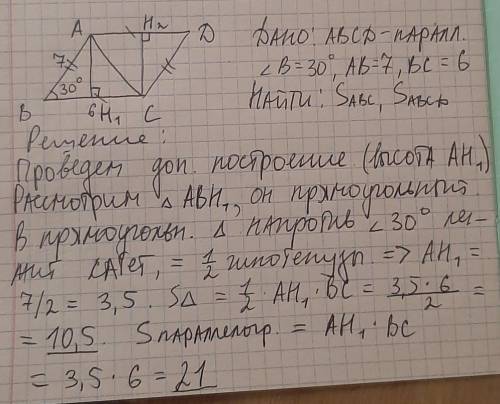 A H₂ D
7 30° 6 H₁
B C
Дано: ABCD-паралл.
∠B=30°, AB=7, BC=6
Найти: SABC, SABCD
Решение:
Проведем доп. построение (высота AH₁)
Рассмотрим △ABH₁, он прямоугольный.
В прямоугольн. △ напротив ∠30° ле-
жит катет, = 1/2 гипотенузы => AH₁=
7/2 = 3,5. S△ = 1/2 · AH₁ · BC = 3,5·6/2 =
= 10,5. Sпараллелогр. = AH₁ · BC
= 3,5 · 6 = 21